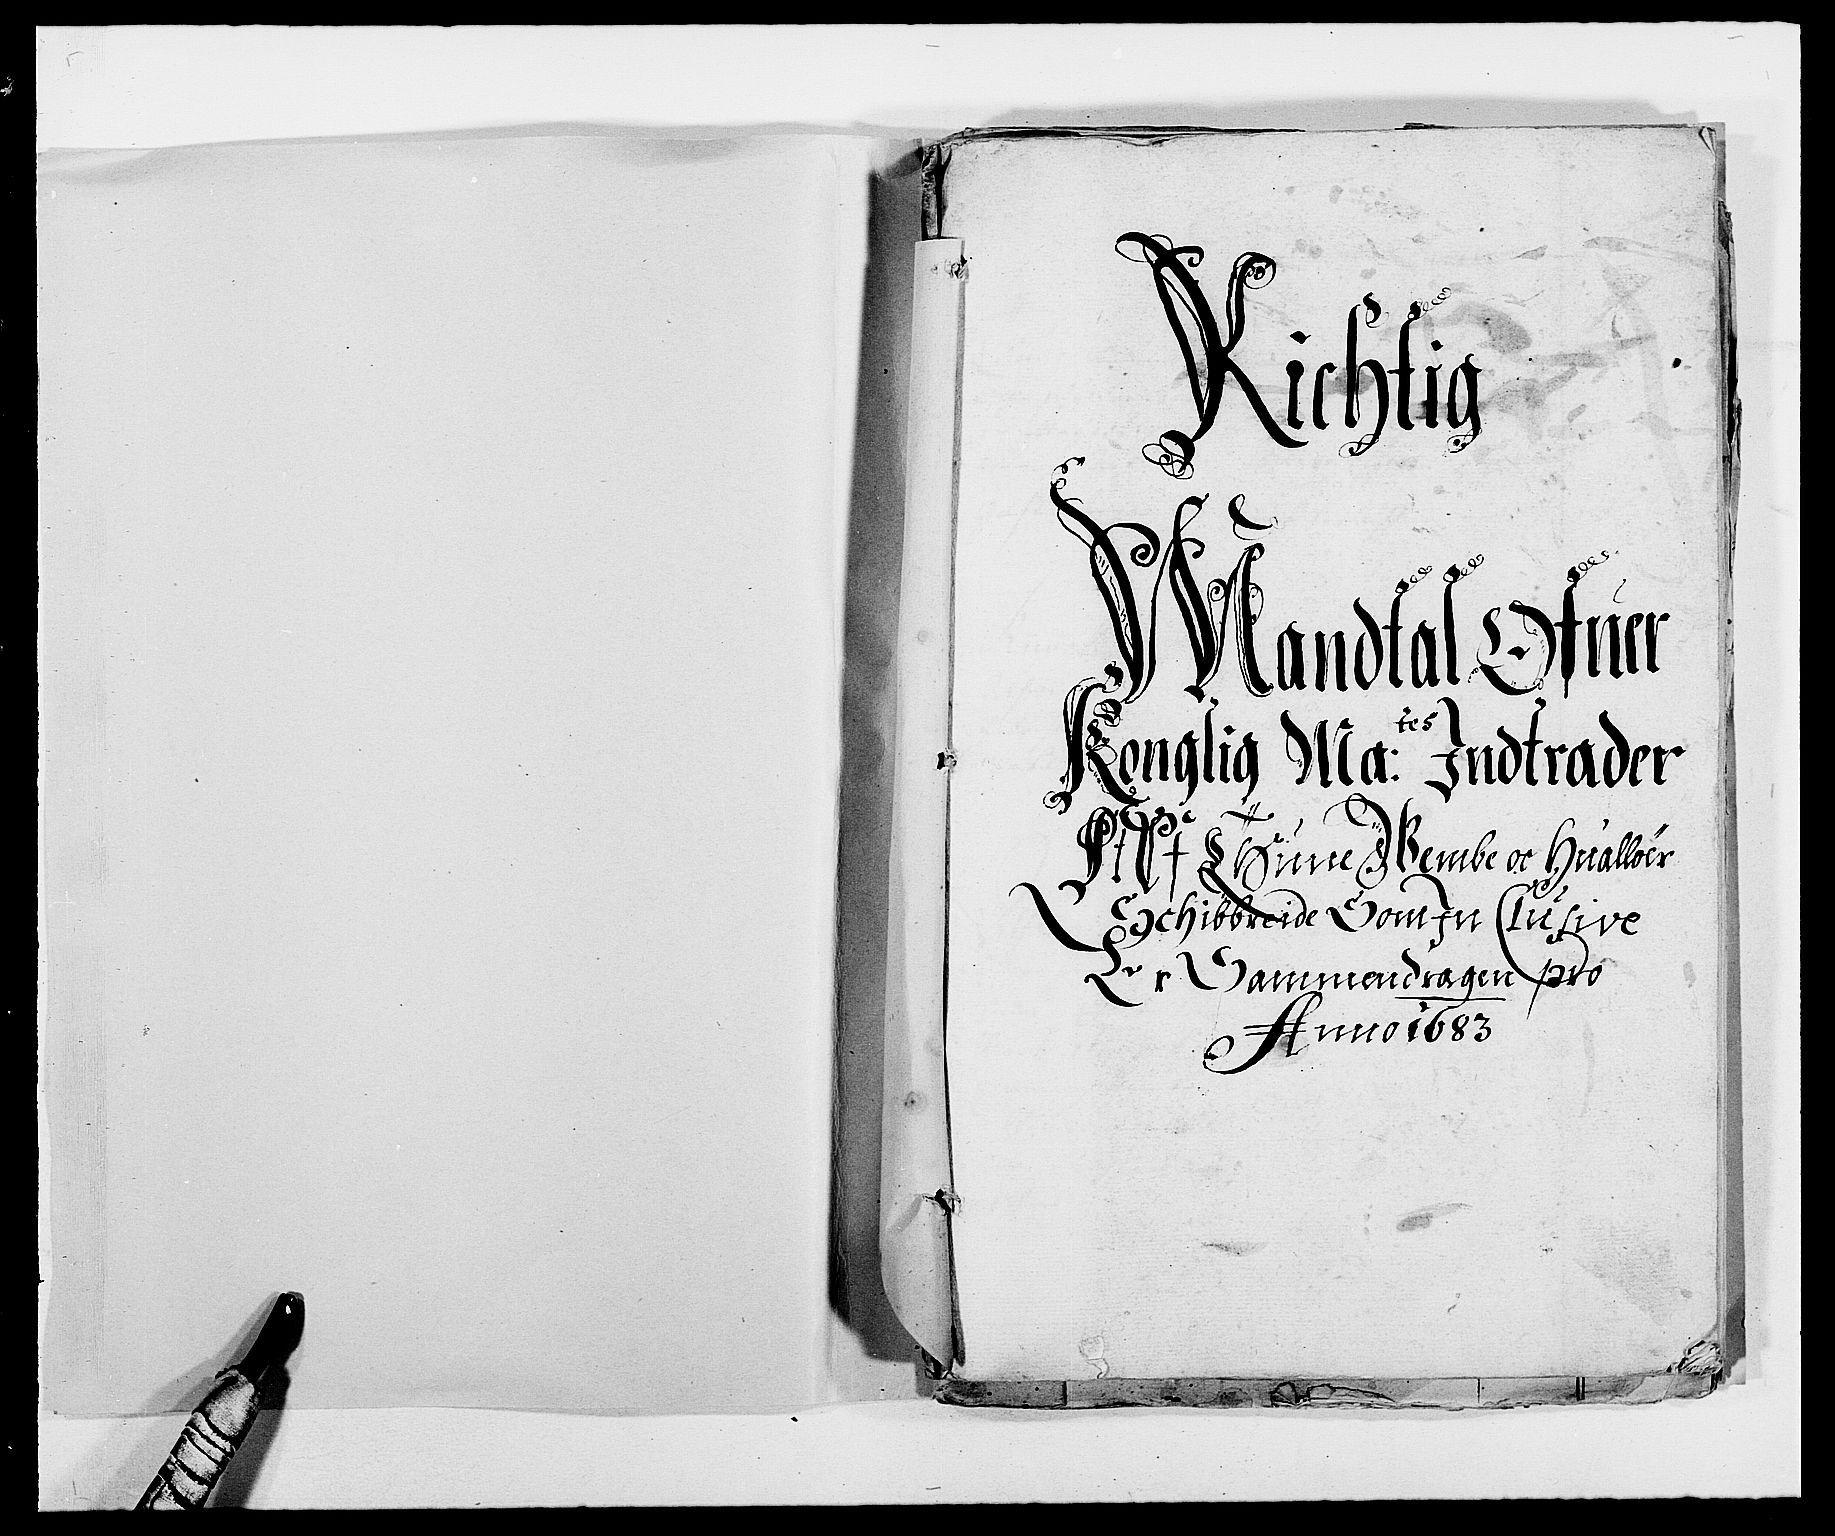 Richtig
Mandtal Ofuer
Konglig Ma:tes Indtrader
Aff Thune Wembe oc Hualløer
Schibbreide Som In Clusive
Er Sammendragen pro
Anno 1683